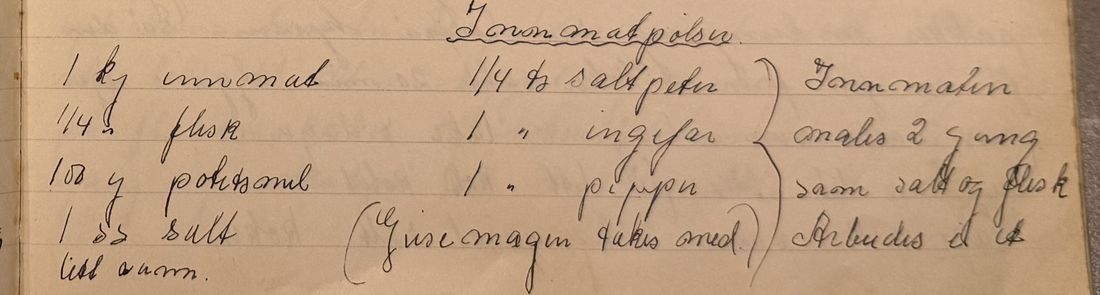 Innmatpølser.
1 kg innmat 1/4 ts saltpeter Innmaten
1/4 " flesk 1 " ingefær males 2 gang
100 g potetsmel 1 " pepper saam salt og flesk
1 ss salt (Grisemagen takes med.) Arbeides i et
litt vann.